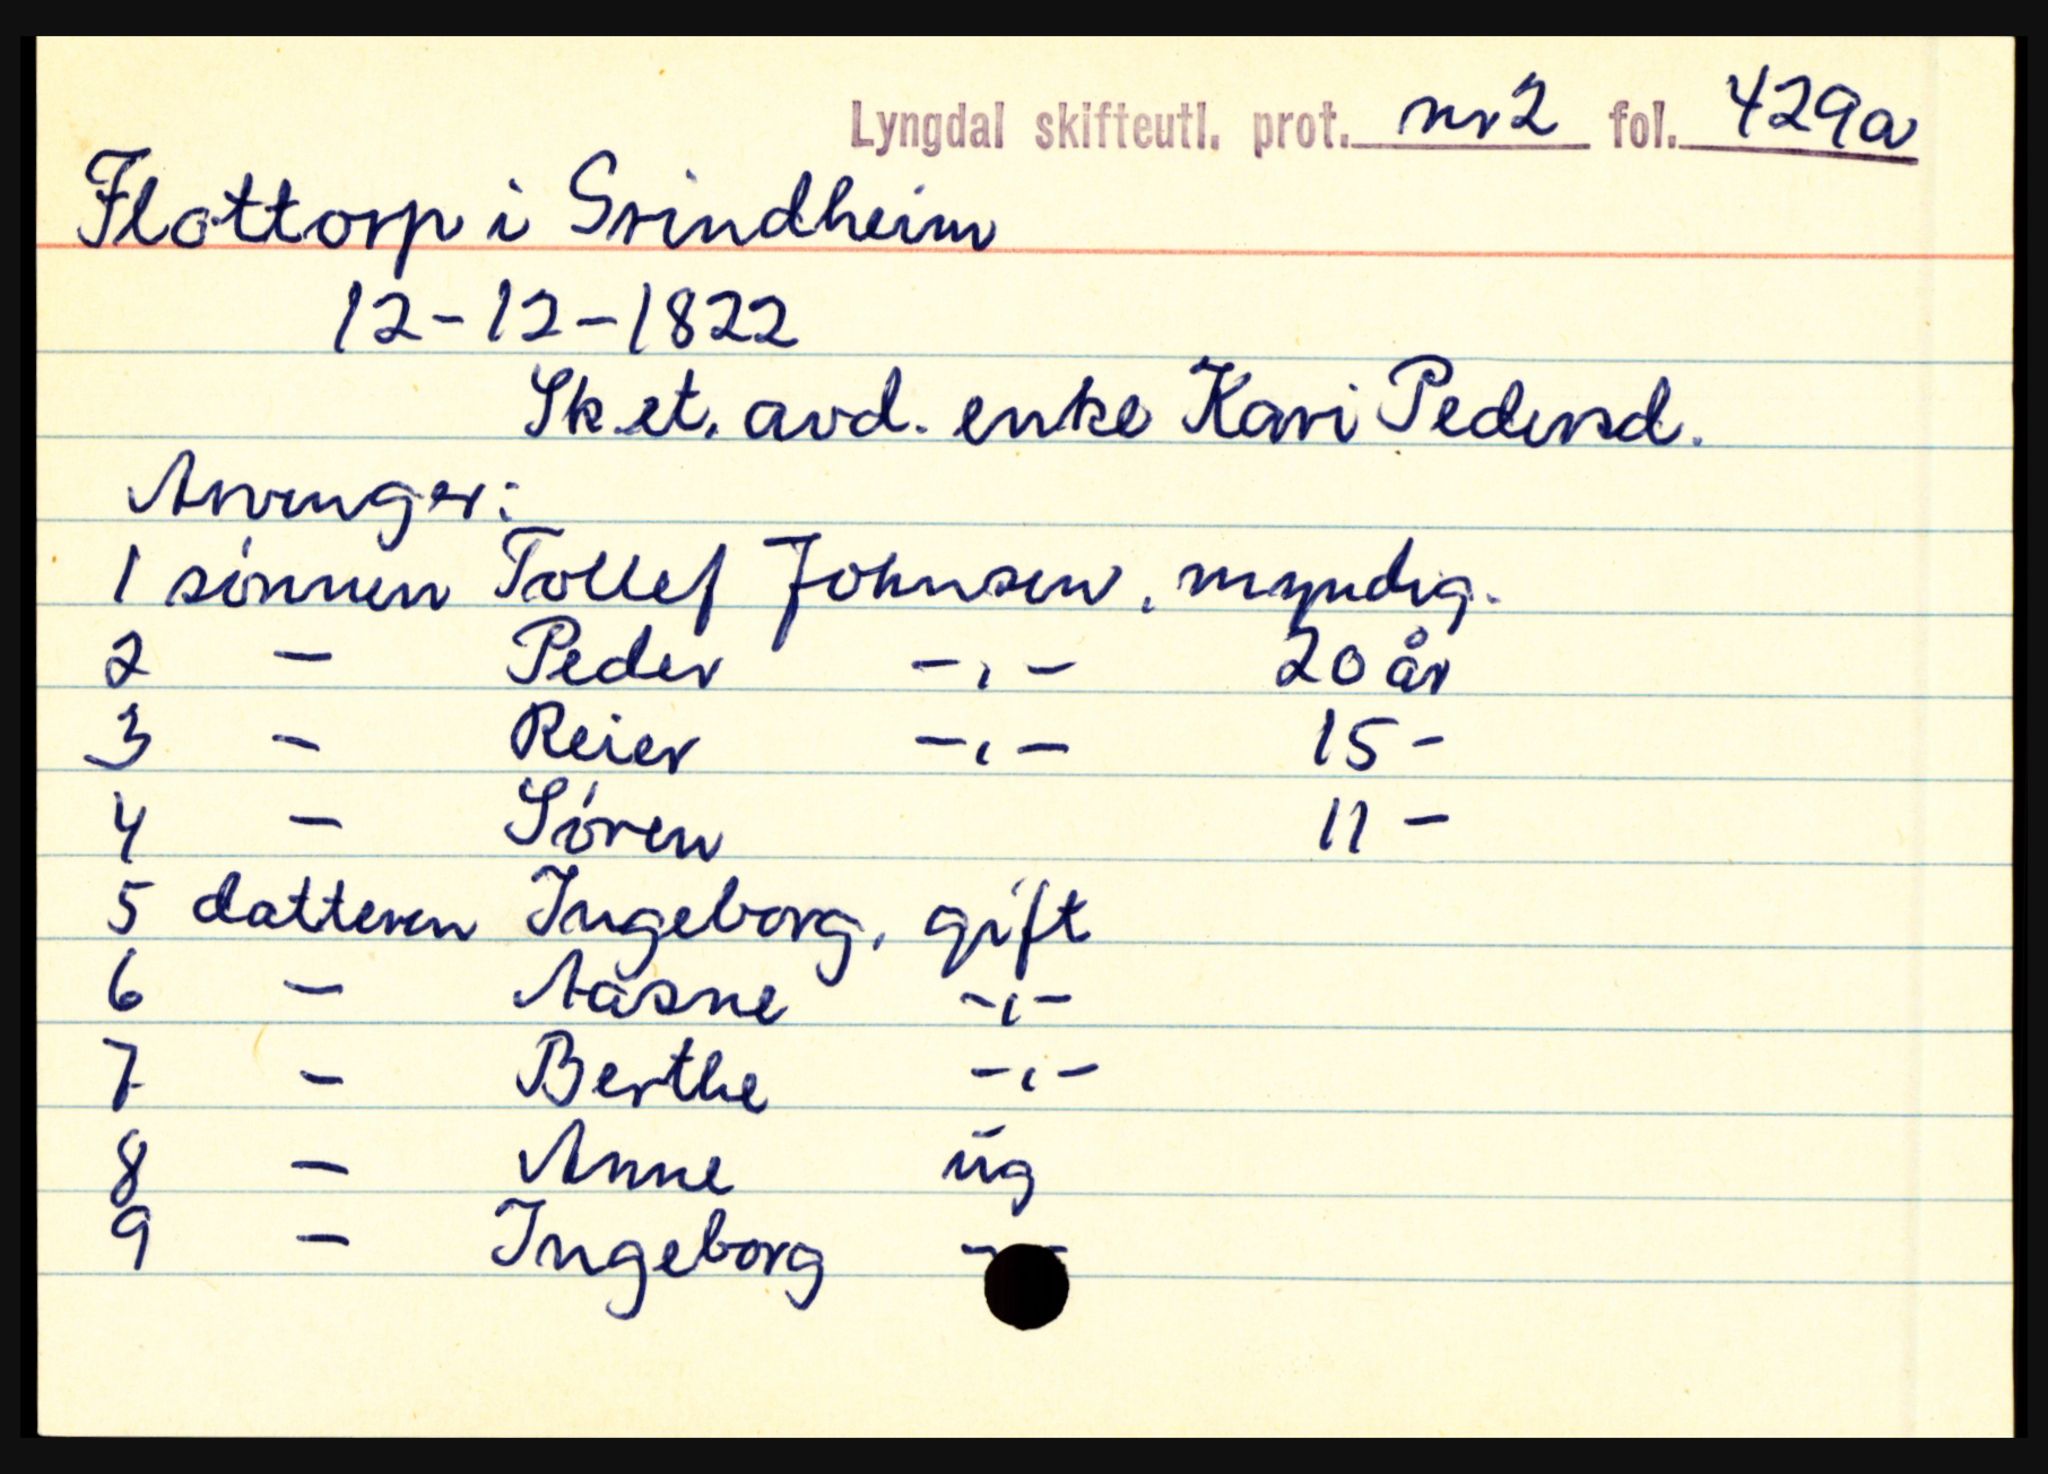 Lyngdal skifteutl. prot. nr 2 fol. 429a
Flottorp i Grindheim
12-12-1822
Sk.et. avd. enke Kari Pedersd.
Arvinger:
1 sønnen Tollef Johnsen, myndig.
2 - Peder -,- 20 år
3 - Reier -,- 15 -
4 - Søren 11 -
5 datteren Ingeborg, gift
6 - Aasne -,-
7 - Berthe -,-
8 - Anne ug
9 - Ingeborg -,-